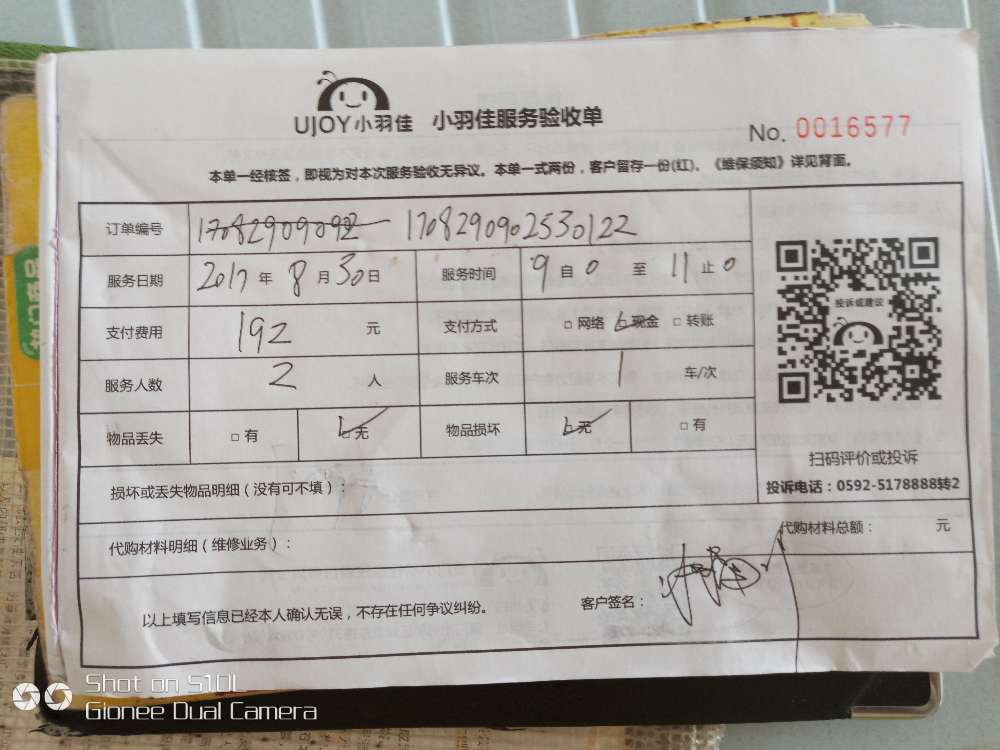 UJOY小羽佳 小羽佳服务验收单
No. 0016577
本单一经核签，即视为对本次服务验收无异议。本单一式两份，客户留存一份(红)、《维保须知》详见背面。
订单编号 17082909092 1708290902530122
服务日期 2017 年 8 月 30 日 服务时间 9 自 0 至 11 止 0
支付费用 192 元 支付方式 □ 网络 □ 现金 □ 转账
服务人数 2 人 服务车次 1 车/次
物品丢失 □ 有 □ 无 物品损坏 □ 无 □ 有
投诉或建议
扫码评价或投诉
投诉电话：0592-5178888转2
损坏或丢失物品明细（没有可不填）：
代购材料明细（维修业务）：
代购材料总额： 元
以上填写信息已经本人确认无误，不存在任何争议纠纷。
客户签名：
Shot on S10L
Gionee Dual Camera